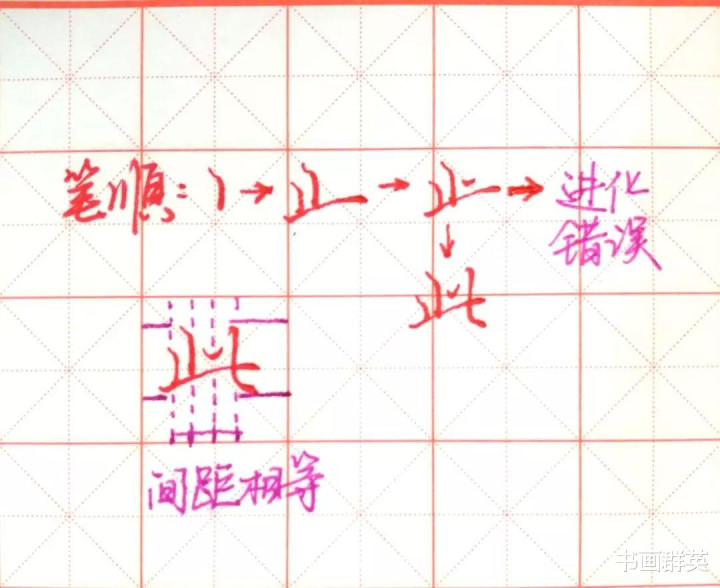 笔顺: 丨→止→止→进化
错误
↓
此
此
间距相等
书画群英